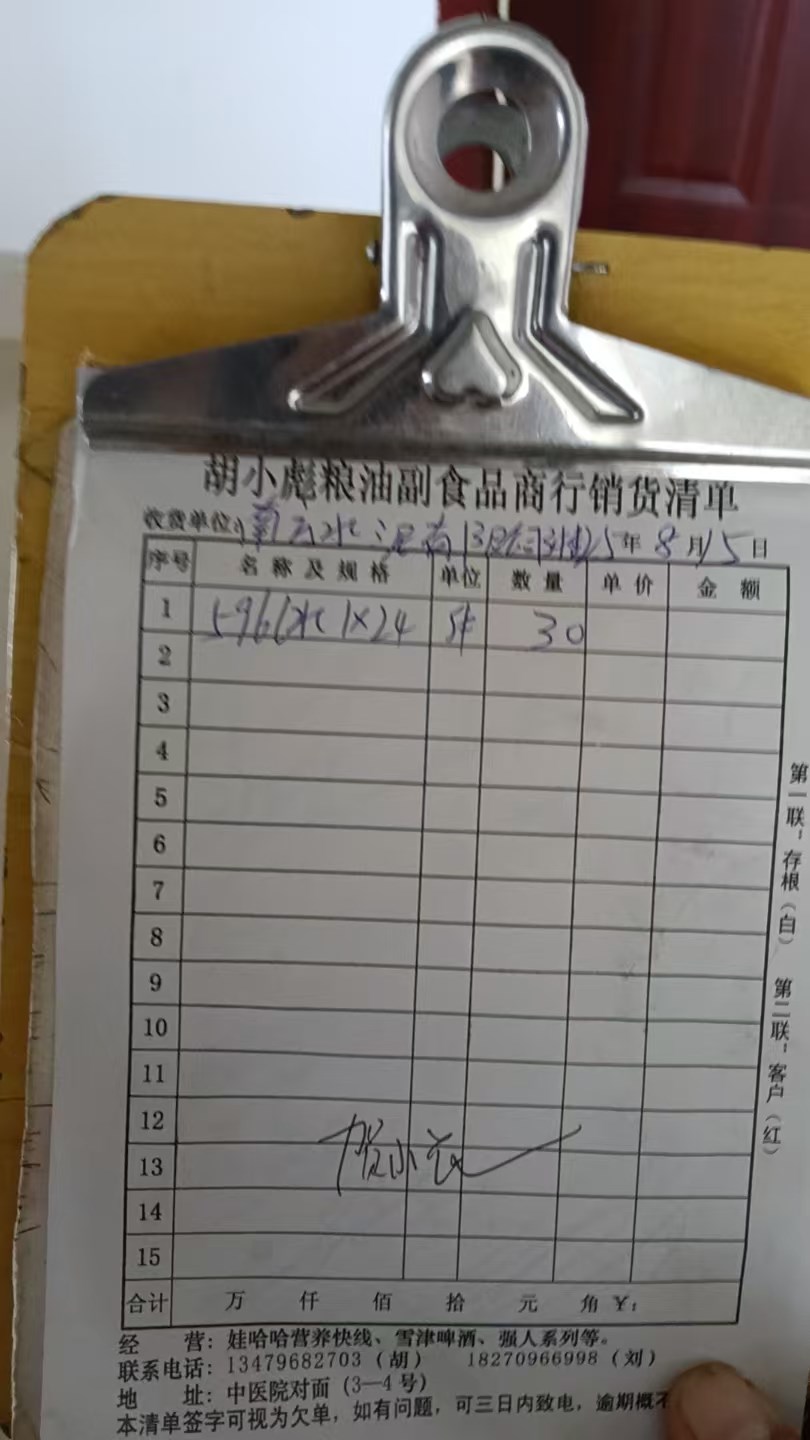 胡小彪粮油副食品商行销货清单
收货单位: 年 8 月 15 日
序号 名称及规格 单位 数量 单价 金额
1 596ml水 1×24 件 30
2
3
4
5
6
7
8
9
10
11
12
13
14
15
合计 万 仟 佰 拾 元 角 ¥:
经 营: 娃哈哈营养快线、雪津啤酒、强人系列等。
联系电话: 13479682703 (胡) 18270966998 (刘)
地 址: 中医院对面 (3—4号)
本清单签字可视为欠单, 如有问题, 可三日内致电, 逾期概不
第一联: 存根 (白) 第二联: 客户 (红)